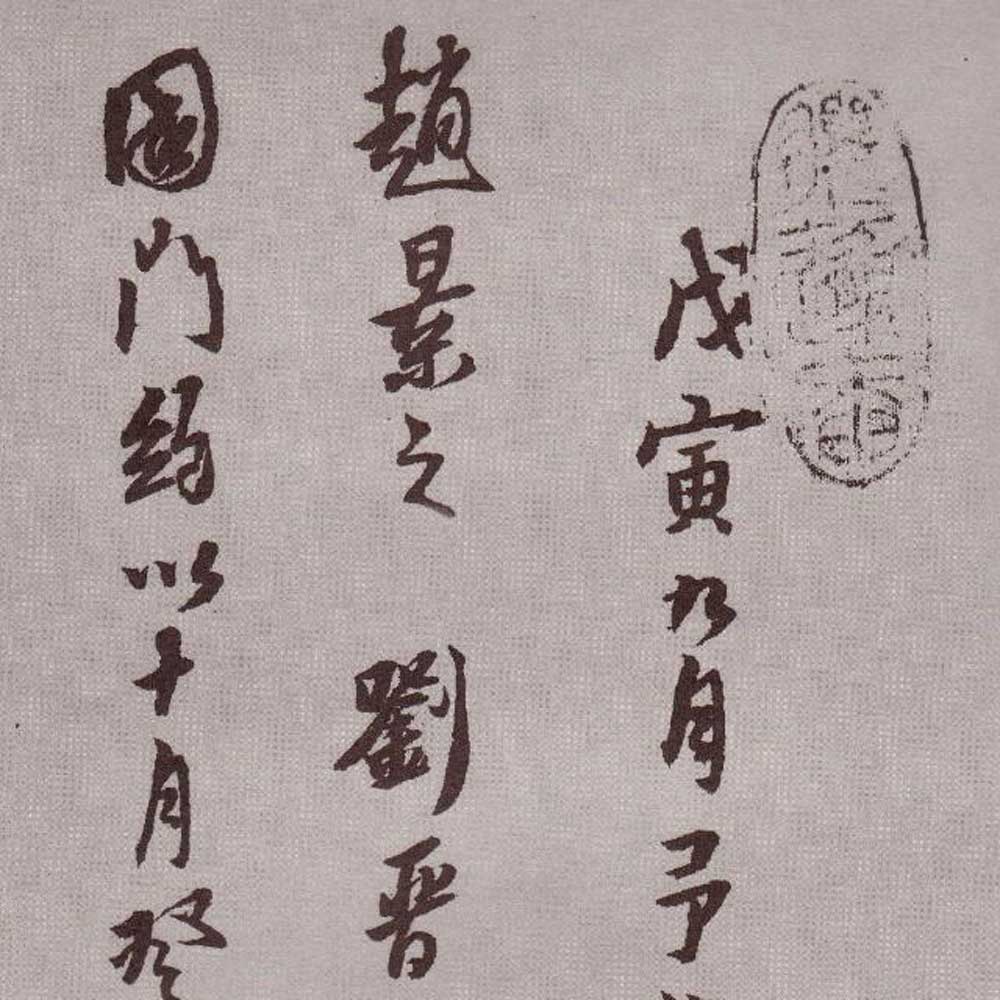 戊寅九月予
趙景之 劉晉
國門約以十月癸